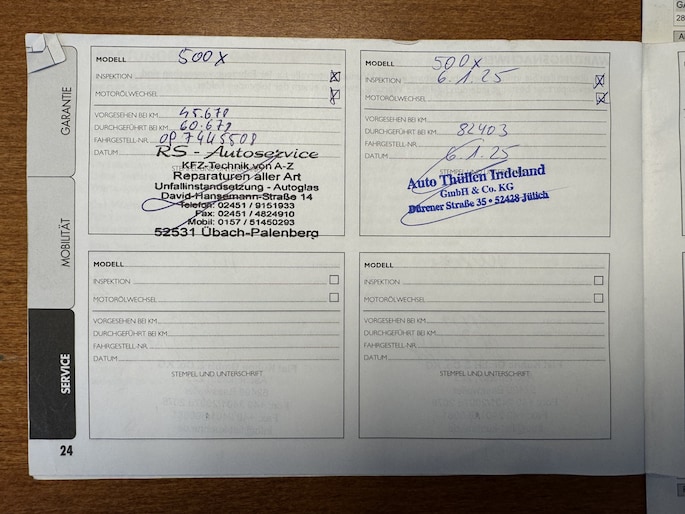 GARANTIE
MOBILITÄT
SERVICE
24
MODELL 500X
INSPEKTION
MOTORÖLWECHSEL
VORGESEHEN BEI KM 45.678
DURCHGEFÜHRT BEI KM 60.678
FAHRGESTELL-NR. 0P7445508
DATUM
RS - Autoservice
KFZ-Technik von A-Z
Reparaturen aller Art
Unfallinstandsetzung - Autoglas
David-Hansemann-Straße 14
Telefon: 02451 / 9151933
Fax: 02451 / 4824910
Mobil: 0157 / 51450293
52531 Übach-Palenberg
MODELL 500X
INSPEKTION 6.1.25
MOTORÖLWECHSEL
VORGESEHEN BEI KM
DURCHGEFÜHRT BEI KM 82403
FAHRGESTELL-NR.
DATUM 6.1.25
Auto Thüllen Indeland
GmbH & Co. KG
Dürener Straße 35 • 52428 Jülich
MODELL
INSPEKTION
MOTORÖLWECHSEL
VORGESEHEN BEI KM
DURCHGEFÜHRT BEI KM
FAHRGESTELL-NR.
DATUM
STEMPEL UND UNTERSCHRIFT
MODELL
INSPEKTION
MOTORÖLWECHSEL
VORGESEHEN BEI KM
DURCHGEFÜHRT BEI KM
FAHRGESTELL-NR.
DATUM
STEMPEL UND UNTERSCHRIFT